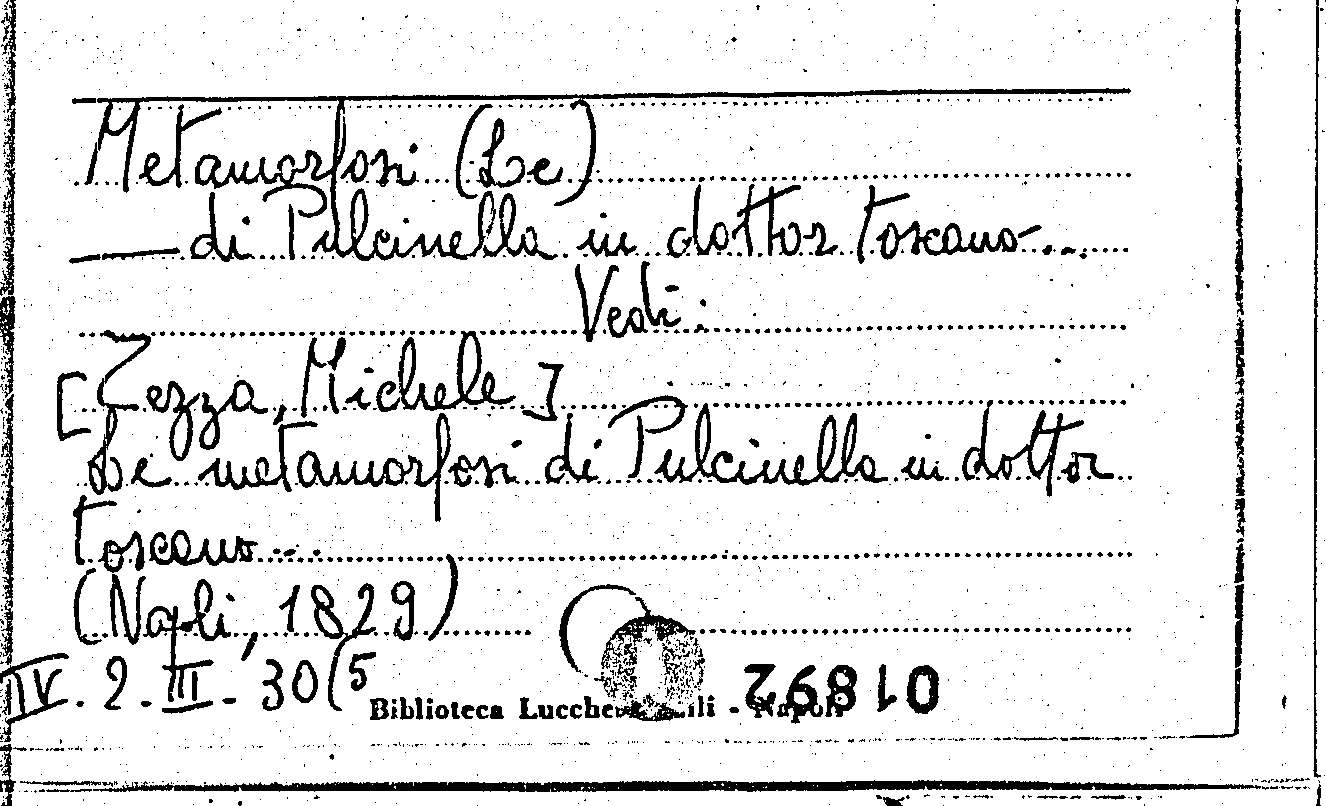 Metamorfosi (Le)
— di Pulcinella in dottor toscano...
Vedi:
[Zezza, Michele]
Le metamorfosi di Pulcinella in dottor
toscano...
(Napoli, 1829)
IV. 2. III - 30(5
Biblioteca Lucchesi Palli - Napoli
01892